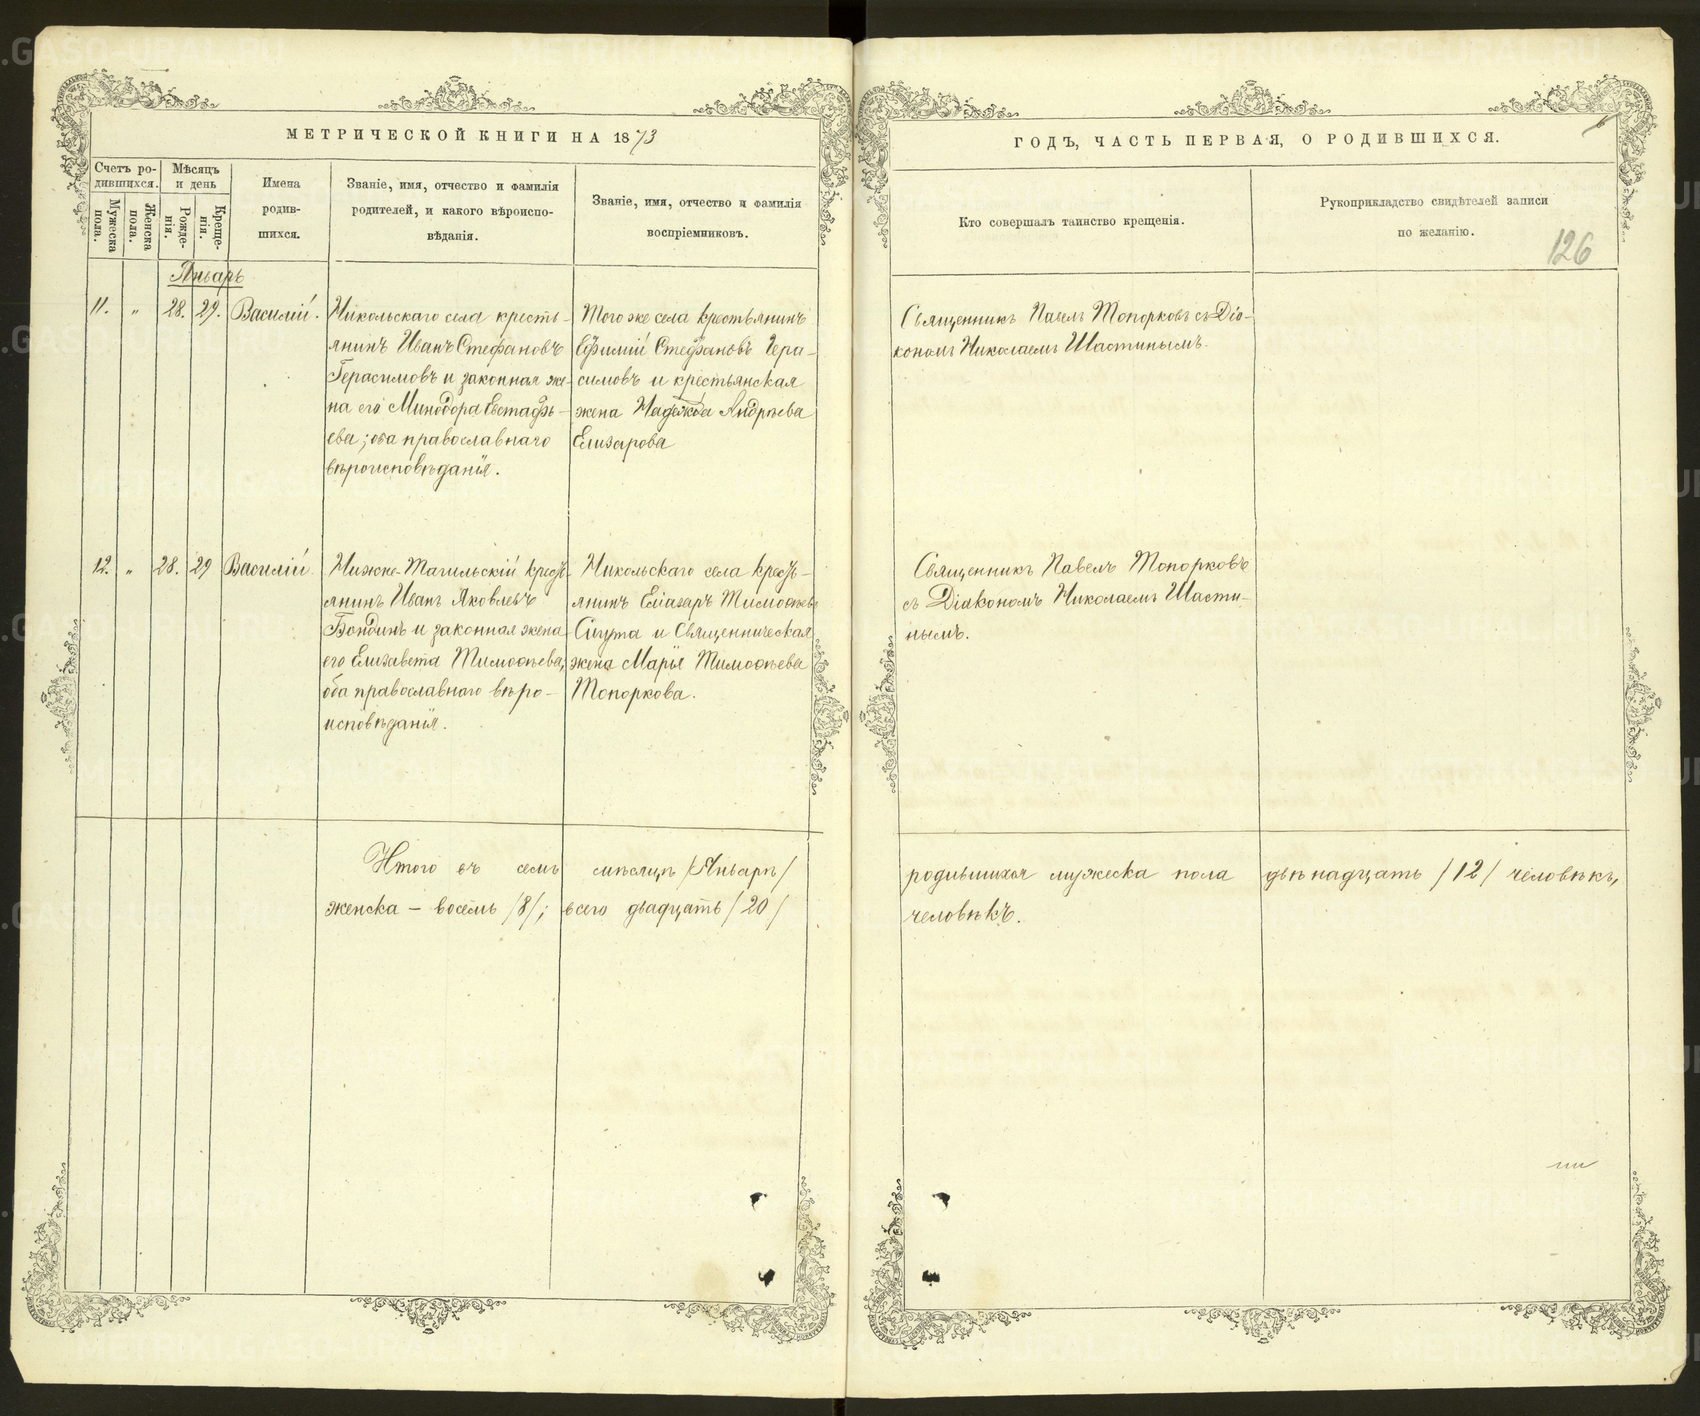 МЕТРИЧЕСКОЙ КНИГИ НА 1873
ГОДЪ, ЧАСТЬ ПЕРВАЯ, О РОДИВШИХСЯ.
Счетъ ро-
дившихся.
Мужеска
пола.
Женска
пола.
Мѣсяцъ
и день
Рожде-
нія.
Креще-
нія.
Имена
родив-
шихся.
Званіе, имя, отчество и фамилія
родителей, и какого вѣроиспо-
вѣданія.
Званіе, имя, отчество и фамилія
воспріемниковъ.
Кто совершалъ таинство крещенія.
Рукоприкладство свидѣтелей записи
по желанію.
126
Январь
11. " 28. 29. Василій.
Никольскаго села кресть-
янинъ Иванъ Стефановъ
Герасимовъ и законная же-
на его Минодора Евстафь-
ева; оба православнаго
вѣроисповѣданія.
Того же села крестьянинъ
Ефимій Стефановъ Гера-
симовъ и крестьянская
жена Надежда Андреева
Елизарова
Священникъ Павелъ Топорковъ съ Діа-
кономъ Николаемъ Шастинымъ.
12. " 28. 29 Василій
Нижне-Тагильскій кресть-
янинъ Иванъ Яковлевъ
Бондинъ и законная жена
его Елизавета Тимоѳеева,
оба православнаго вѣро-
исповѣданія.
Никольскаго села кресть-
янинъ Еліазаръ Тимоѳеевъ
и Священническая
жена Марія Тимоѳеева
Топоркова.
Священникъ Павелъ Топорковъ
съ Діакономъ Николаемъ Шасти-
нымъ.
Итого въ семъ мѣсяцѣ /Январѣ/ родившихся мужеска пола двѣнадцать /12/ человѣкъ,
женска - восемь /8/; всего двадцать /20/ человѣкъ.